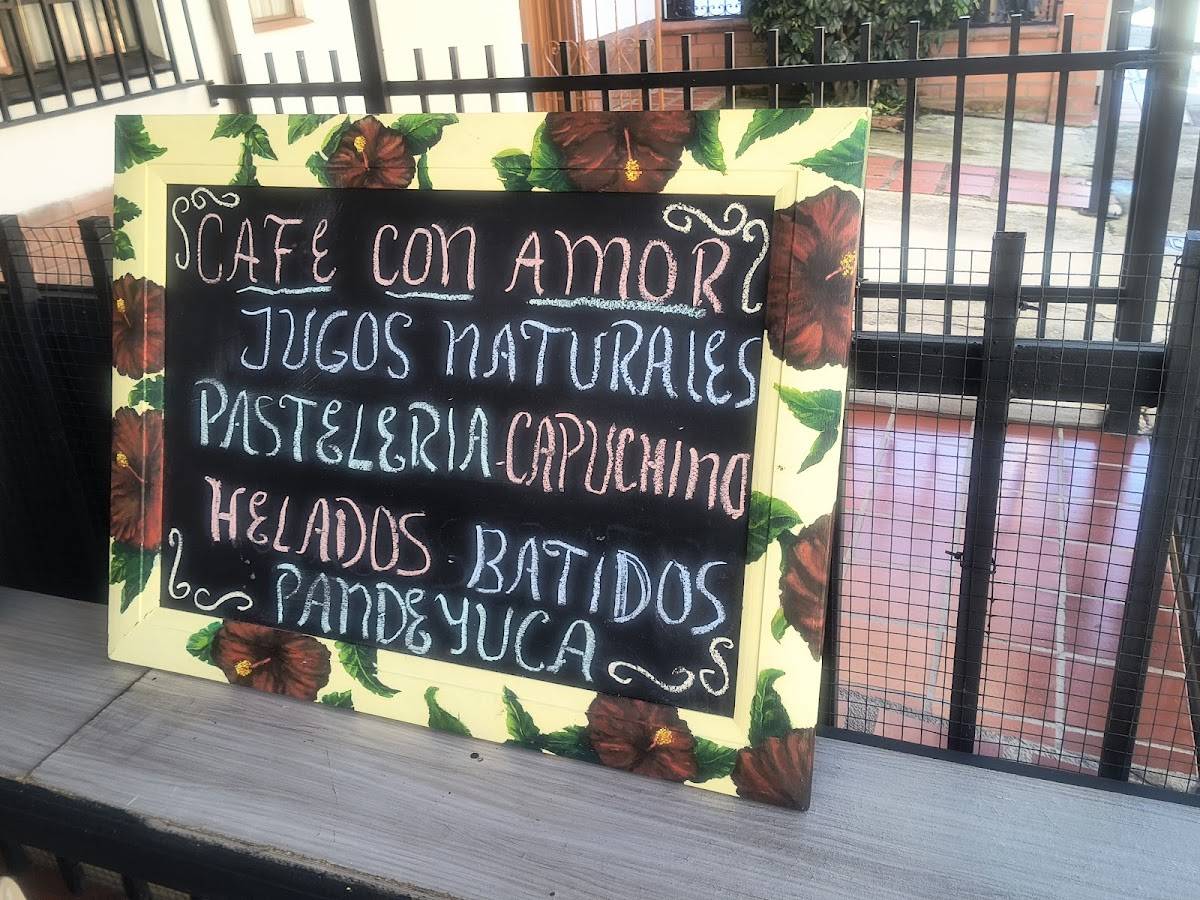 CAFE CON AMOR
JUGOS NATURALES
PASTELERIA CAPUCHINO
HELADOS BATIDOS
PANDEYUCA